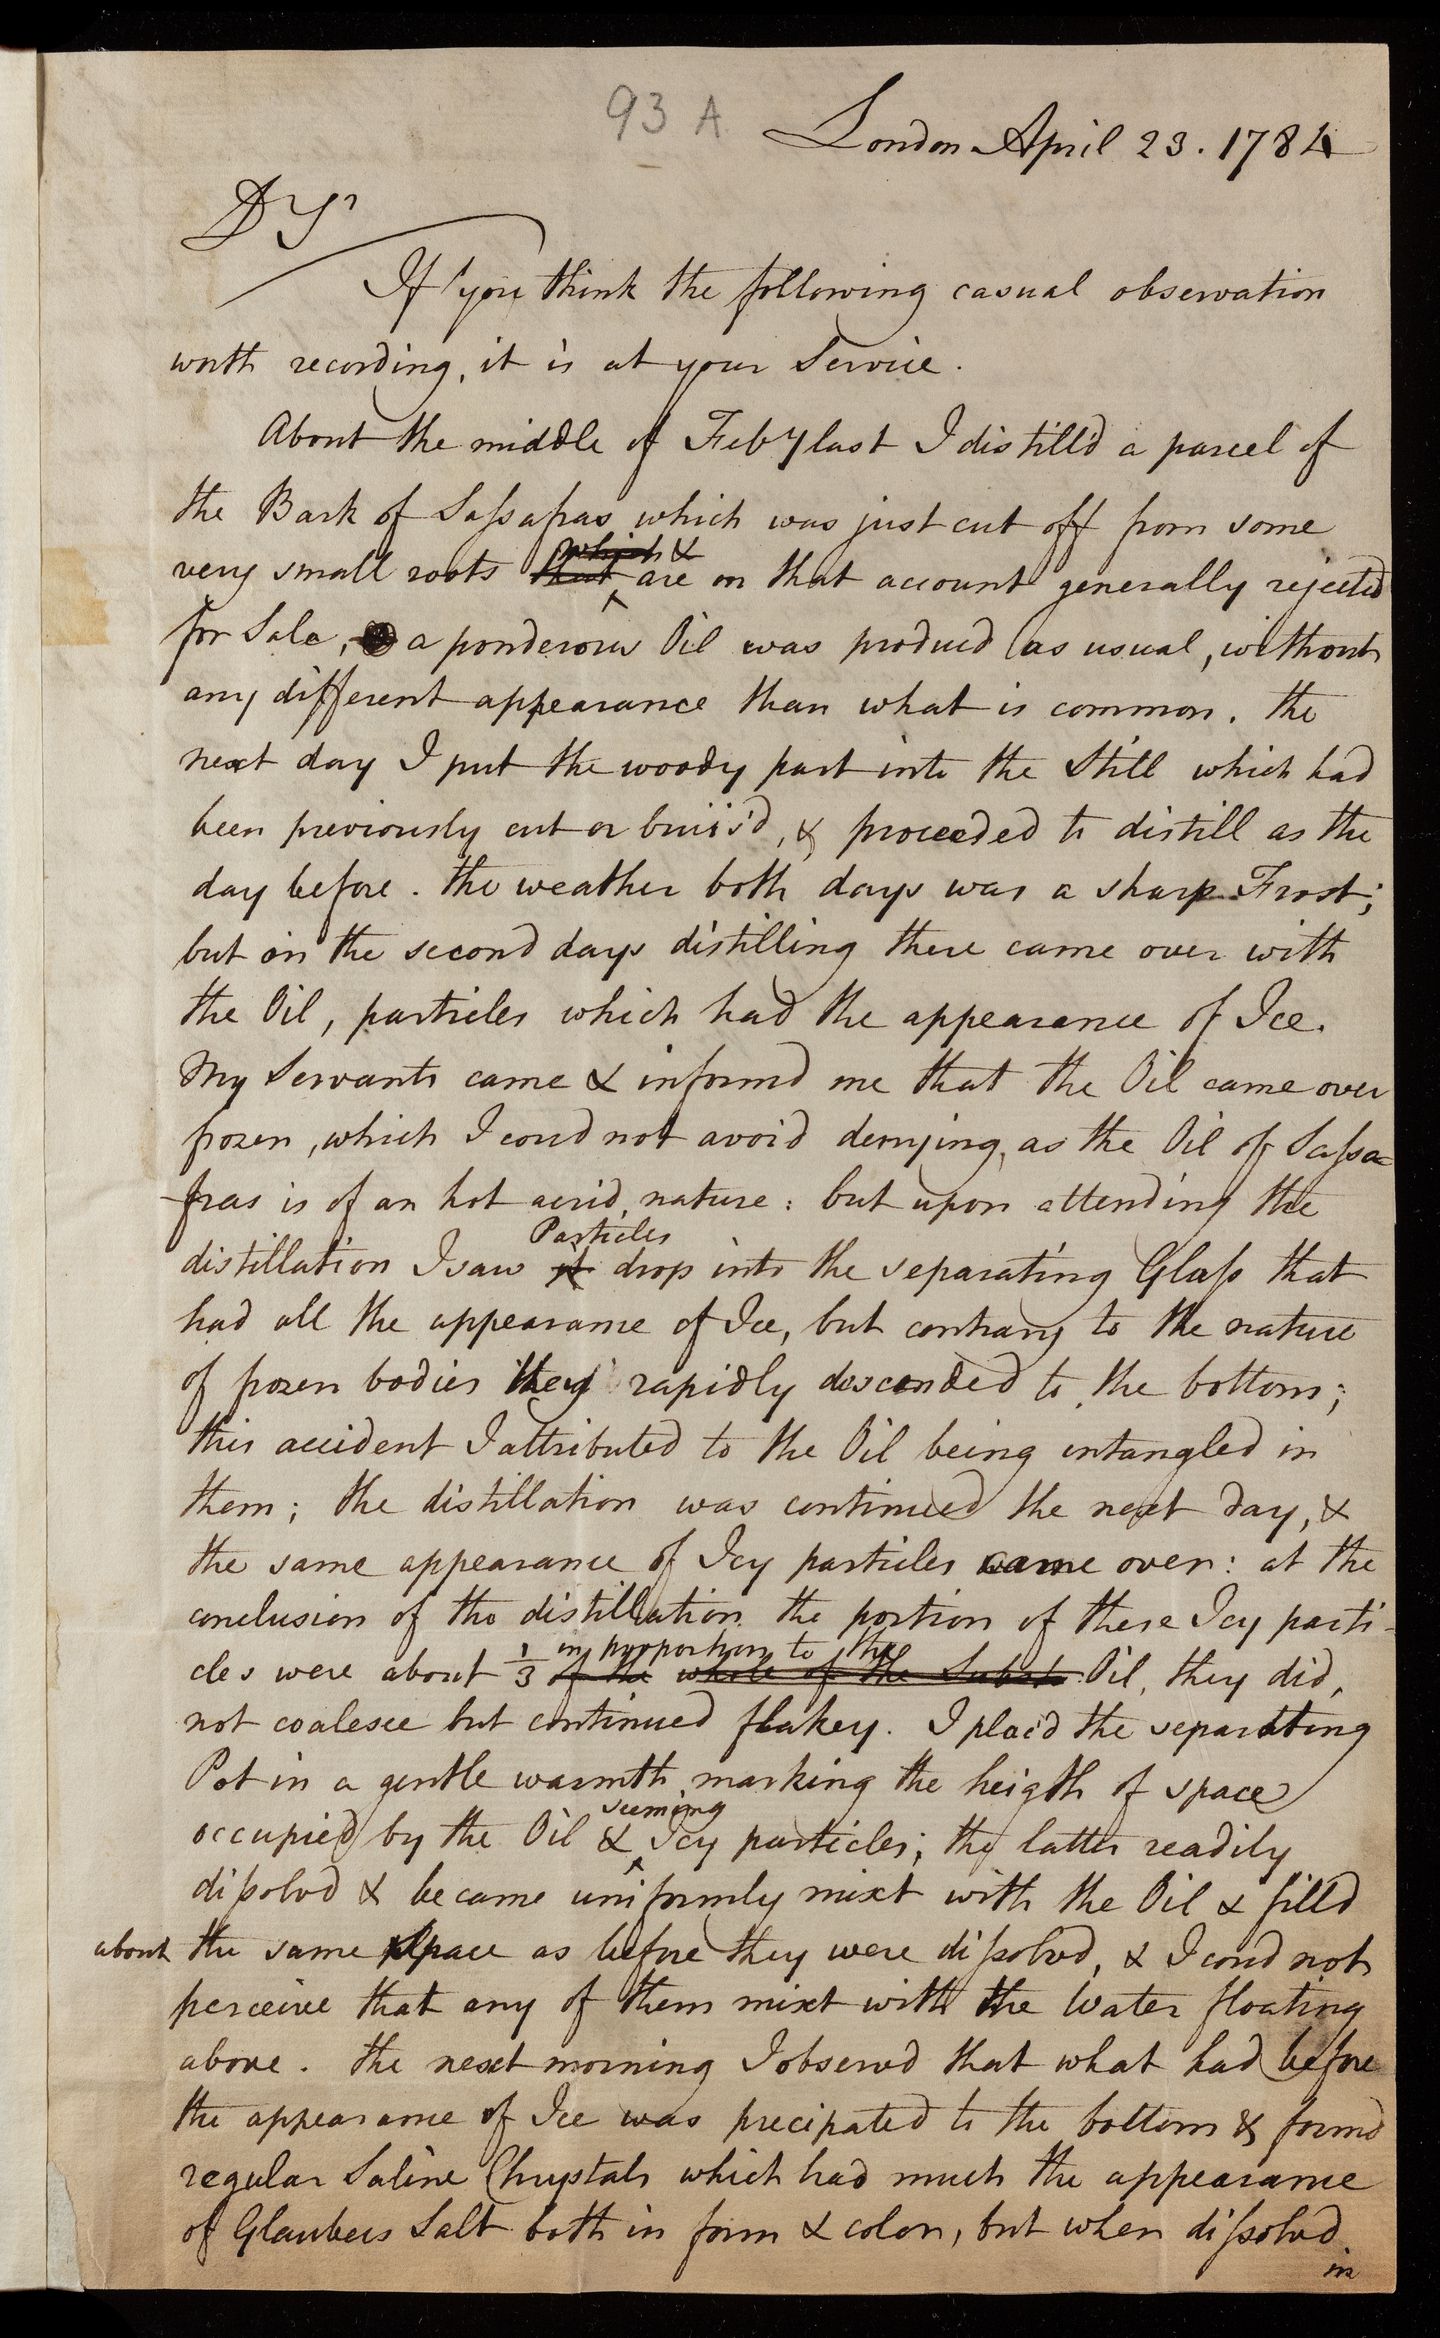 93 A
London April 23. 1784
Dr Sr
If you think the following casual observation
worth recording, it is at your Service.
About the middle of Feby last I distill'd a parcel of
the Bark of Saſsafras which was just cut off from some
which &
very small roots that are on that account generally rejected
for Sale, a ponderous Oil was produced as usual, without
any different appearance than what is common. the
next day I put the woody part into the Still which had
been previously cut or bruis'd, & proceeded to distill as the
day before. the weather both days was a sharp Frost;
but in the second days distilling there came over with
the Oil, particles which had the appearance of Ice.
My Servants came & informd me that the Oil came over
frozen, which I coud not avoid denying, as the Oil of Saſsa=
fras is of an hot acrid nature: but upon attending the
Particles
distillation I saw it drop into the separating Glaſs that
had all the appearance of Ice, but contrary to the nature
of frozen bodies they rapidly descended to the bottom;
this accident I attributed to the Oil being entangled in
them; the distillation was continued the next day, &
the same appearance of Icy particles came over: at the
conclusion of the distillation the portion of these Icy parti-
in proportion to the
cles were about 1/3 of the whole of the Oil, they did
not coalesce but continued flakey. I plac'd the separating
Pot in a gentle warmth marking the heigth of space
seeming
occupied by the Oil & Icy particles; the latter readily
diſsolvd & became uniformly mixt with the Oil & filld
about the same Space as before they were diſsolvd, & I coud not
perceive that any of them mixt with the Water floating
above. the next morning I observd that what had before
the appearance of Ice was precipated to the bottom & formd
regular Saline Chrystals which had much the appearance
of Glaubers Salt both in form & color, but when diſsolvd
in